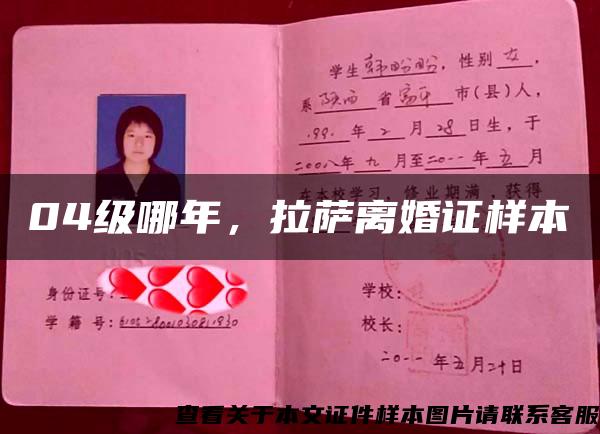 学生韩盼盼，性别女，
系陕西省富平市(县)人，
199 年2月28日生，于
二00八年九月至二0一一年五月
在本校学习，修业期满，获得
04级哪年，拉萨离婚证样本
身份证号：
学籍号：
学校：
校长：
二0一一年五月二十日
查看关于本文证件样本图片请联系客服